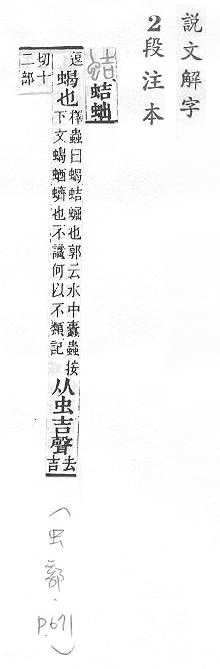 說文解字
2段注本
蛣䖦
逗蝎也釋蟲曰蝎蛣𧌑也郭云水中蠹蟲按
下文蝎蝤蠐也不識何以不類記
从虫吉聲去
吉
切十
二部
(虫部.P.671)